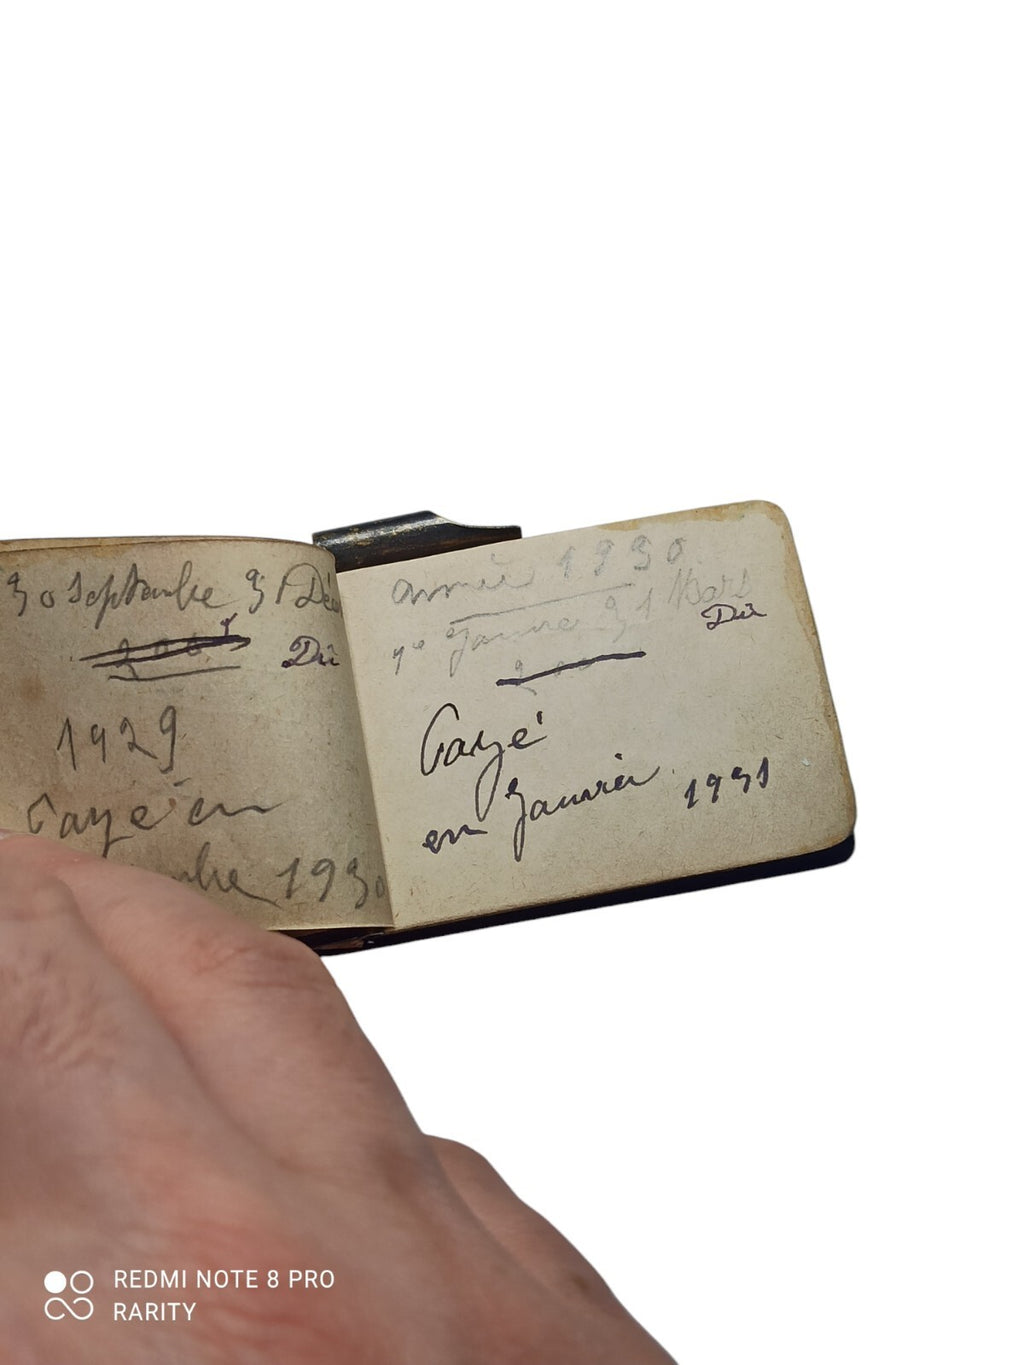 30 Septembre 31 Déc
200 f
Dû
1929
Payé en
mbre 1930
année 1930
1e Janvier 31 Mars
Dû
200
Payé
en Janvier 1931
REDMI NOTE 8 PRO
RARITY